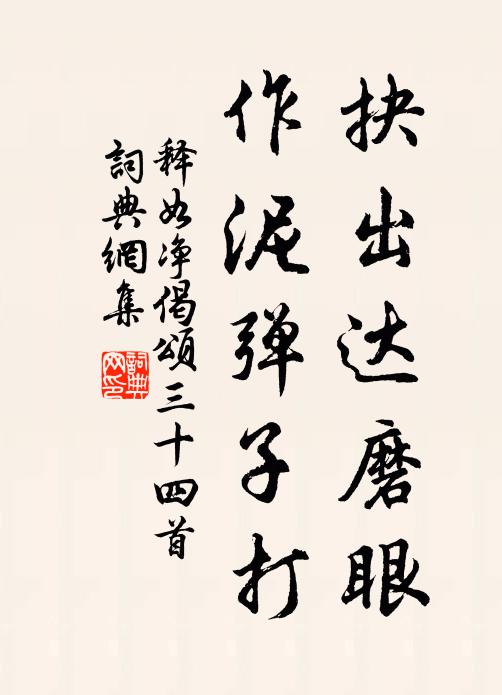 抉出达磨眼
作泥弹子打
释如净偈頌三十四首
詞典網集
詞典
网印